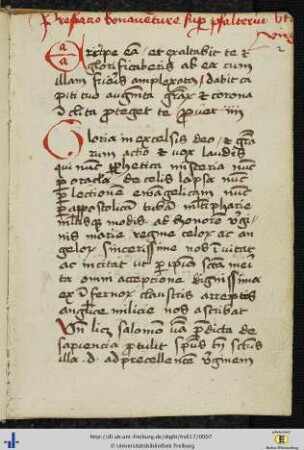 Prefacio bonauenture sup psalteriu bte
v̄gīs
2
Arripe eā / et exaltabit te et
glorificaberis ab ea cum
illam fueris amplexatus / dabit ca
piti tuo augmēta grār̄ et corona
īclita proteget te pūer iiij
Gloria in excelsis deo / et grār̄
rum actio et vox laudis
qui nūc pphetica misteria nūc
p oracla de celis lapsa nūc
p lectione ewāgelicam nūc
p appostolicā tubā multipharie
multisqȝ modis ad honorē v̄gi
nis marie regine celor̄ ac an
gelor̄ sincerissime nos īuitat
ac incitat vt p ipius sctām mēri
ta omni acceptione dignissima
ex īfernor̄ claustris arreptos
anglice milicie nos astribat
Vn̄ licȝ salomōn vā pdicta de
sapiencia ptulit spūs tn̄ sctūs
illa . d . ad precellencē v̄ginem
http://dl.ub.uni-freiburg.de/diglit/hs817/0007
© Universitätsbibliothek Freiburg